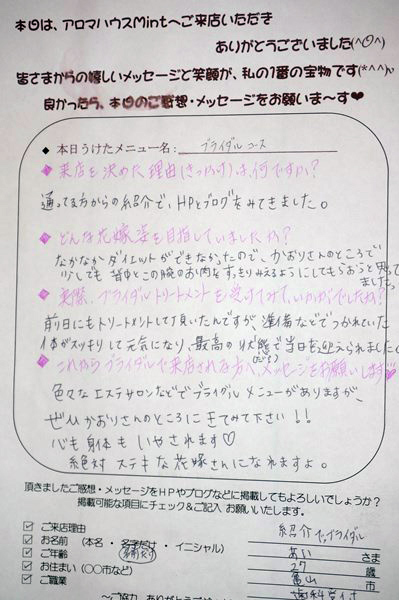 本日は、アロマハウスMintへご来店いただき
ありがとうございました(^○^)
皆さまからの嬉しいメッセージと笑顔が、私の1番の宝物です(*^^*)
良かったら、本日のご感想・メッセージをお願いま〜す♥
◆ 本日うけたメニュー名: ブライダルコース
◆来店を決めた理由(きっかけ)は、何ですか?
通ってる方からの紹介で、HPとブログをみてきました。
◆どんな花嫁姿を目指していましたか?
なかなかダイエットができなかったので、かおりさんのところで
少しでも背中と二の腕のお肉をすっきりみえるようにしてもらおうと思って
ました。
◆実際、ブライダルトリートメントを受けてみて、いかがでしたか?
前日にもトリートメントして頂いたんですが、準備などでつかれていた
体がスッキリして元気になり、最高の状態で当日を迎えられました
◆これからブライダルで来店される方へ、メッセージをお願いします♡
色々なエステサロンなどでブライダルメニューがありますが、
ぜひかおりさんのところにきてみて下さい!!
心も身体もいやされます♡
絶対ステキな花嫁さんになれますよ。
頂きましたご感想・メッセージをHPやブログなどに掲載してもよろしいでしょうか?
掲載可能な項目にチェック&ご記入 お願いいたします。
☑ ご来店理由 紹介 ブライダル
☑ お名前 (本名・名字だけ・イニシャル) あい さま
名前だけ
☑ ご年齢 27 歳
☑ お住まい (○○市など) 亀山 市
☑ ご職業 歯科受付
〜ご協力、ありがとうございま